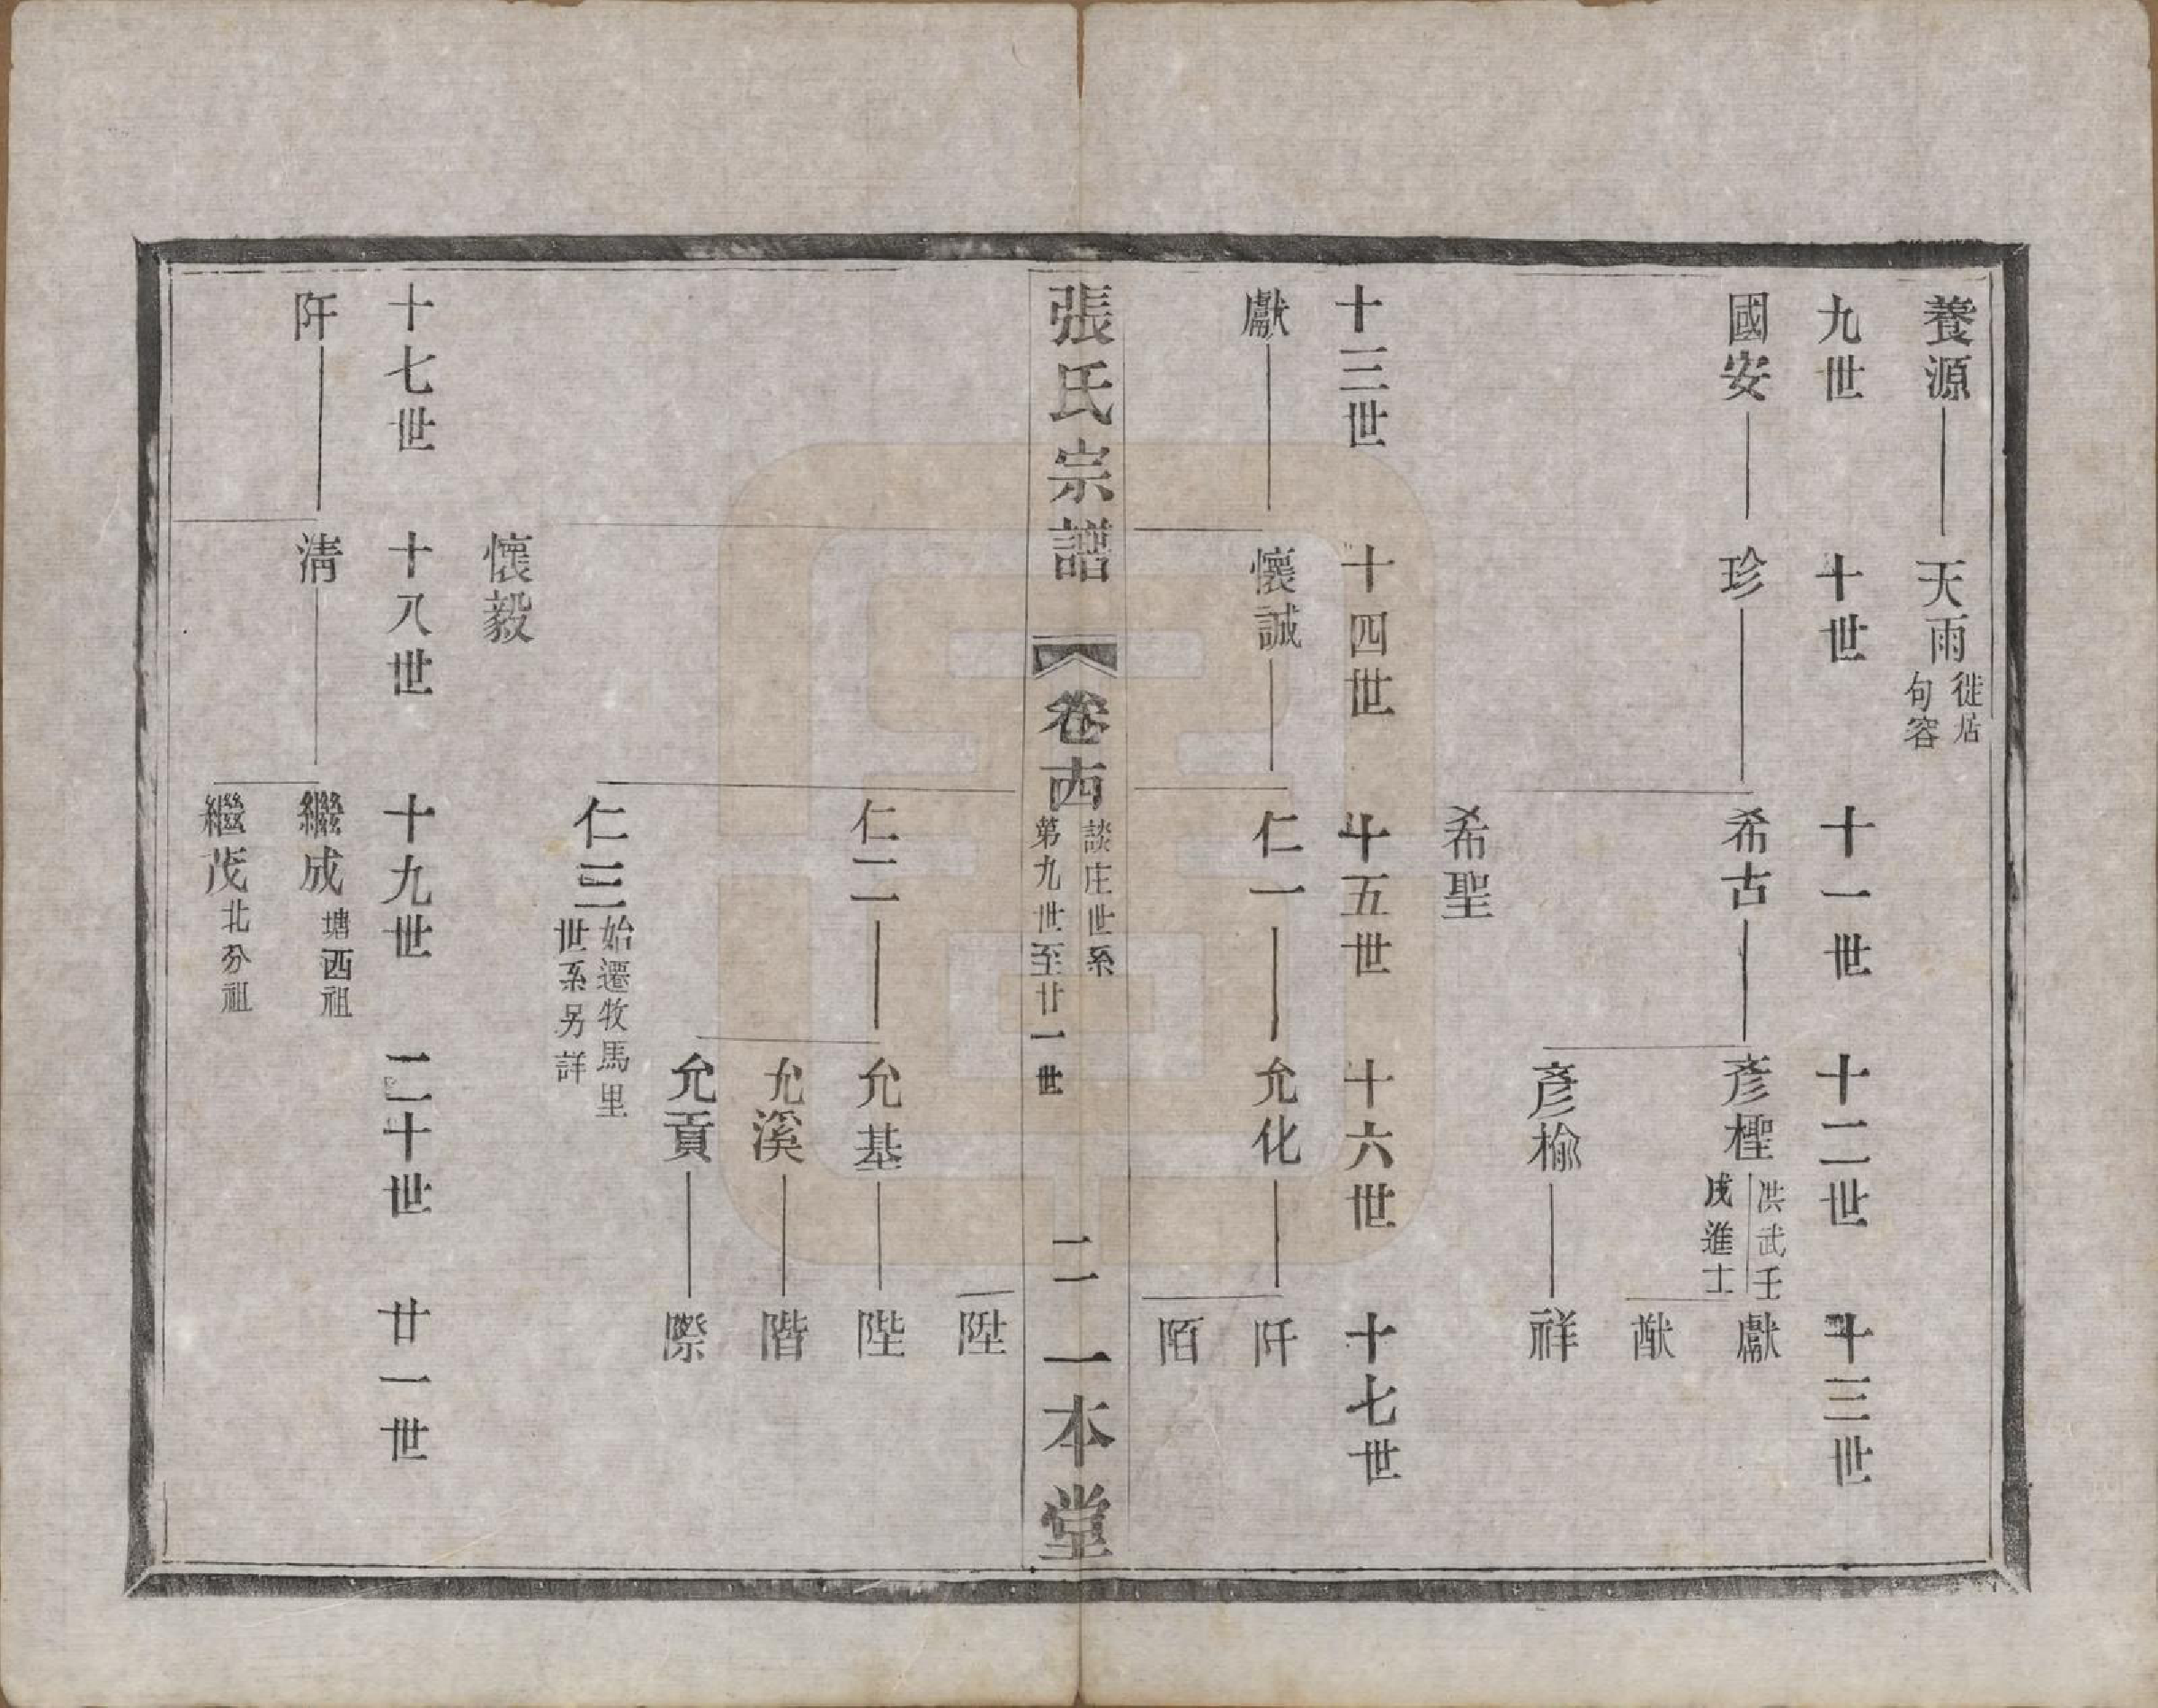 養源 天雨 徙居句容
九世 十世 十一世 十二世 十三世
國安 珍 希古 彥檉 洪武壬戌進士 獻
猷
彥楡 祥
希聖
十三世 十四世 十五世 十六世 十七世
獻 懷誠 仁一 允化 阡
陌
張氏宗譜 卷 談庄世系 第九世至廿一世 二 一本堂
陞
仁二 允基 陛
允溪 階
允貢 際
仁三 始遷牧馬里世系另詳
懷毅
十七世 十八世 十九世 二十世 廿一世
阡 淸 繼成 塘西祖
繼茂 北分祖